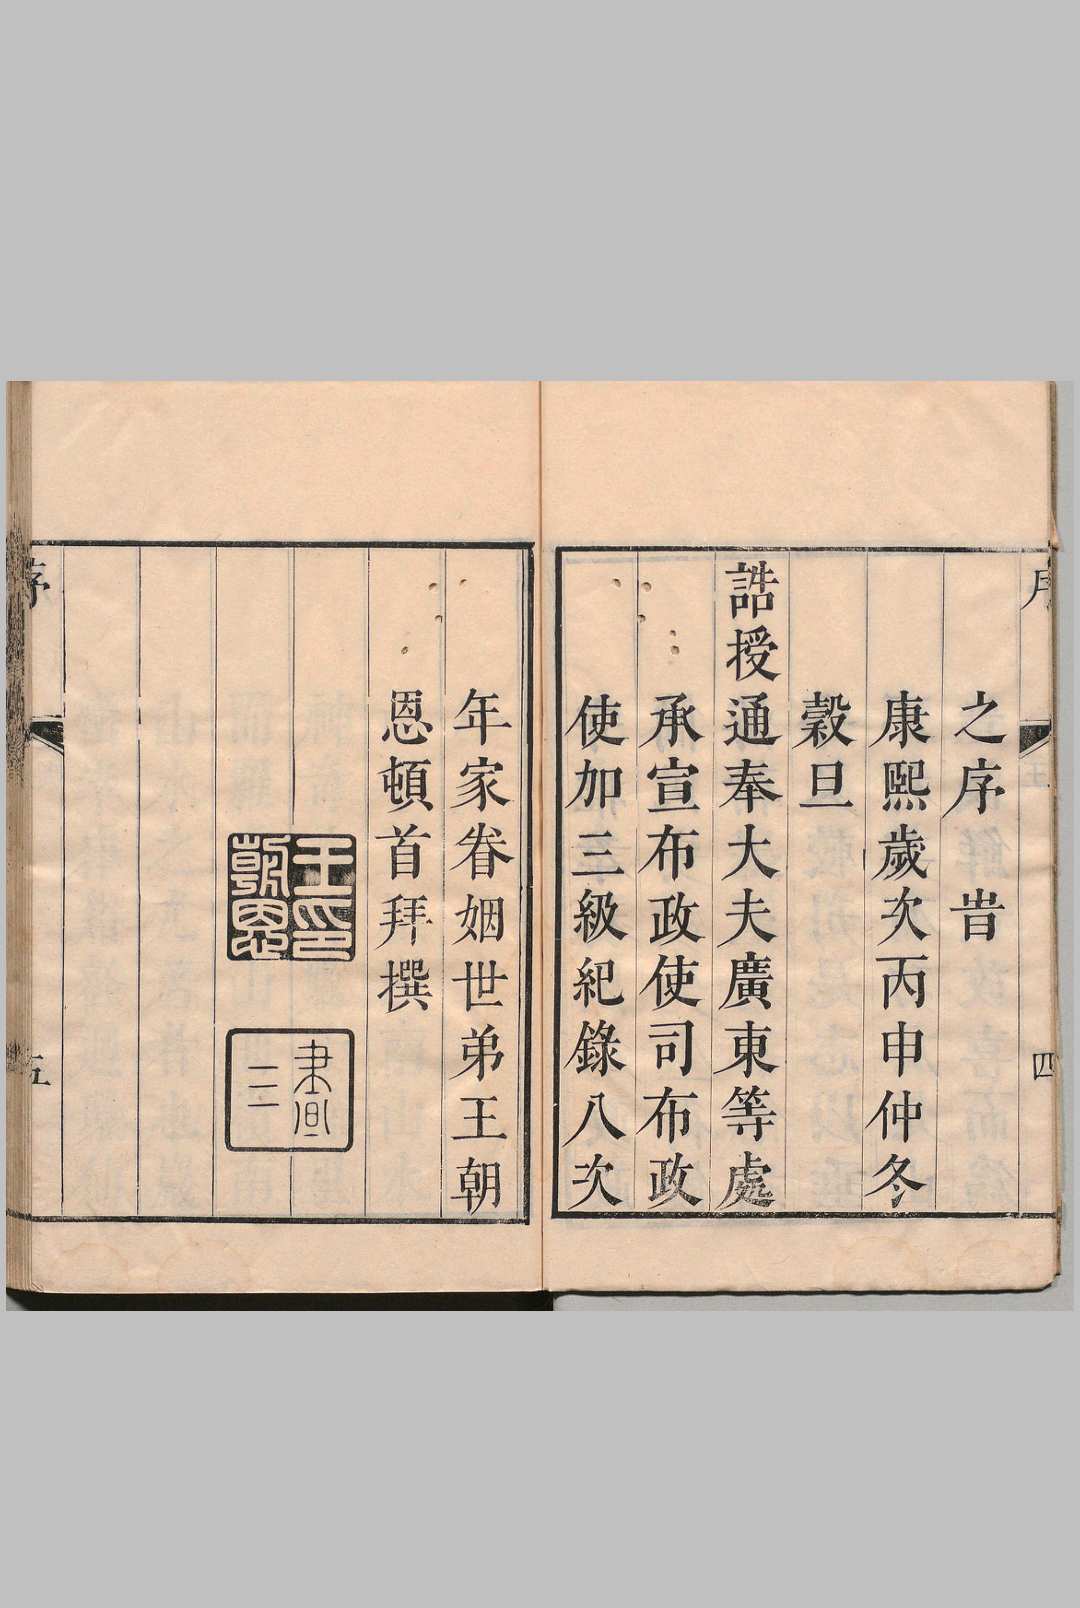 之序 旹
康熙歲次丙申仲冬
穀旦
誥授通奉大夫廣東等處
承宣布政使司布政
使加三級紀錄八次
四
年家眷姻世弟王朝
恩頓首拜撰
王朝恩印
序
五